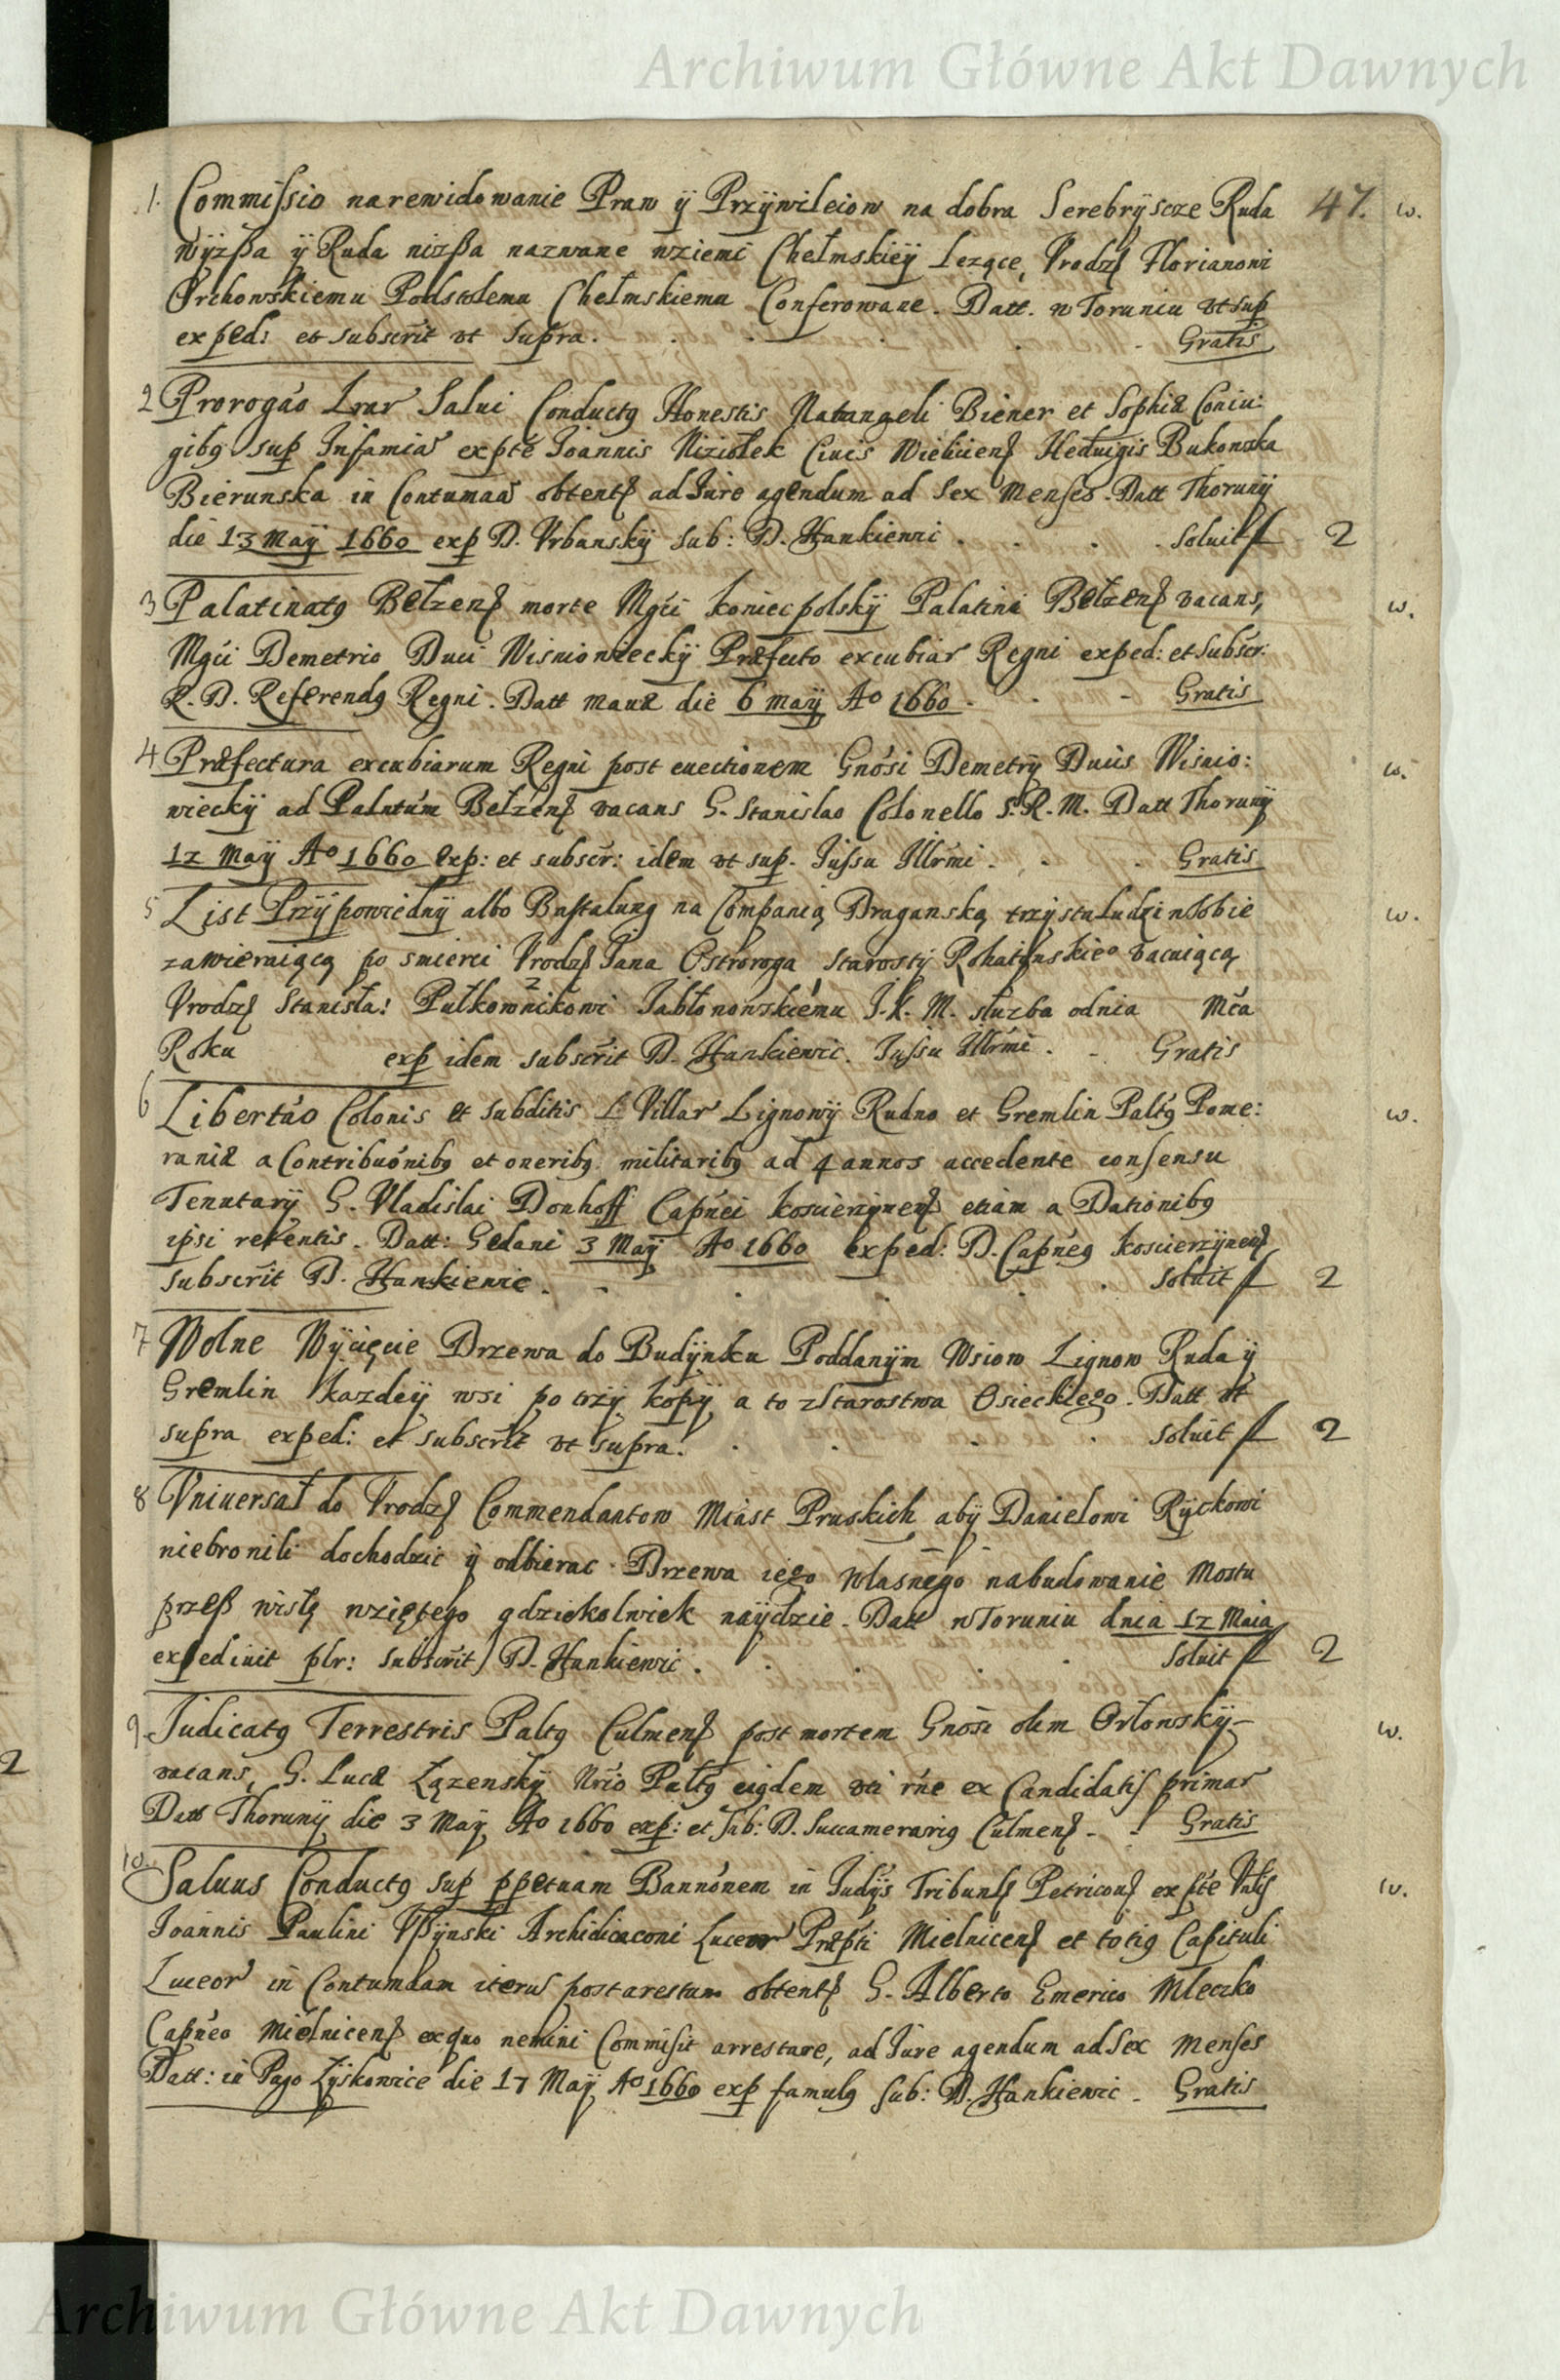 Archiwum Główne Akt Dawnych
1. Commissio narewidowanie Praw ÿ Przÿwileiow na dobra Serebrÿscze Ruda 47. w.
wÿzßa ÿ Ruda nizßa nazwane wziemi Chełmskieÿ Lezące, Vrodz Florianowi
Orchowskiemu Podstolemu Chełmskiemu Conferowane. Datt. w Toruniu vt sup
exped: et subscrit vt supra. Gratis
2 Prorogao Lrar Salui Conductq Honestis Natangeli Biener et Sophiæ Coniu:
gibq sup Infamia expte Joannis Niziołek Ciuis Wieliciens Heduigis Bukowska
Bierunska in Contumaa obtent ad Jure agendum ad Sex Menses. Datt Thorunÿ
die 13 Maÿ 1660 exp D. Vrbanskÿ sub: D. Hankiewic . soluit f 2
3 Palatinatq Bełzens morte Mgci Koniecpolskÿ Palatini Bełzens vacans, w.
Mgci Demetrio Duci Wisniowieckÿ Præfecto excubiar Regni exped: et Subscr:
R. D. Referendq Regni. Datt Mauæ die 6 Maÿ Ao 1660. Gratis
4 Præfectura excubiarum Regni post euectionem Gnosi Demetrÿ Ducis Wisnio: w.
wieckÿ ad Palatum Bełzens vacans G. Stanislao Colonello S. R. M. Datt Thorunÿ
12 Maÿ Ao 1660 exp: et subscr: idem vt sup. Jussu Illrmi. Gratis
5 List Przÿpowiednÿ albo Bastalung na Companią Draganską trzÿstaludzi wsobie w.
zawieraiącą po smierci Vrodz Jana Ostroroga Starostÿ Rohatÿnskieo vacuiącą
Vrodz Stanisła: Pułkownikowi Jabłonowskiemu J. K. M. słuzba odnia Mca
Roku exp idem subscrit D. Hankiewic. Jussu Illrmi. Gratis
6 Libertao Colonis et subditis Villar Lignowÿ Rudno et Gremlin Paltq Pome: w.
raniæ a Contribuonibq et oneribq militaribq ad 4 annos accedente consensu
Tenutarÿ G. Vladislai Donhoff Capnei Koscierzÿnens etiam a Dationibq
ipsi retentis. Datt: Gedani 3 Maÿ Ao 1660 exped: D. Capneq Koscierzÿnens
subscrit D. Hankiewic. soluit f 2
7 Wolne Wÿcięcie Drzewa do Budÿnku Poddanÿm Wsiow Lignow Ruda ÿ
Gremlin kazdeÿ wsi po trzÿ kopÿ a to zstarostwa Osieckiego. Datt vt
supra exped: et subscrit vt supra. soluit f 2
8 Vniuersał do Vrodz Commendantow Miast Pruskich abÿ Danielowi Rÿckowi
niebronili dochodzic ÿ odbierac Drzewa iego własnego nabudowanie Mostu
przeß wisłę wziętego gdziekolwiek naÿdzie. Datt wToruniu dnia 12 Maia
expediuit plr: subscrit D. Hankiewic. soluit f 2
9 Judicatq Terrestris Paltq Culmens post mortem Gnosi olim Orłowskÿ w.
vacans, G. Lucæ Łązenskÿ Nrio Pałtq eiqdem vti rne ex Candidatis primar
Datt Thorunÿ die 3 Maÿ Ao 1660 exp: et Sub: D. Succamerariq Culmens. Gratis
10. Saluus Conductq sup ppetuam Bannonem in Judÿs Tribunls Petricous ex pte w.
Joannis Paulini Vßÿnski Archidiaconi Luceor Præpti Mielnicens et totiq Capituli
Luceor in Contumaam iterus post arestum obtent G. Alberto Emerico Mleczko
Capneo Mielnicens exquo nemini Commisit arrestare, ad Jure agendum ad Sex Menses
Datt: in Pago Zÿskowice die 17 Maÿ Ao 1660 exp famulq sub: D. Hankiewic. Gratis
2
Archiwum Główne Akt Dawnych